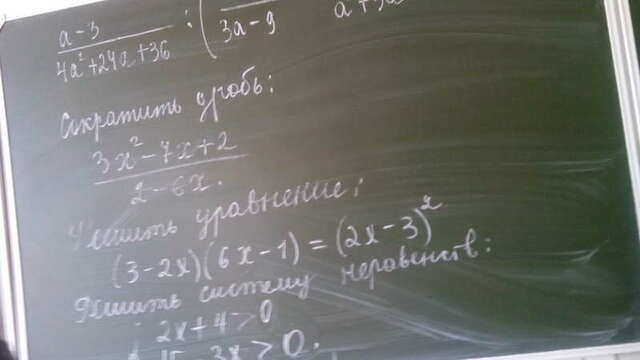 (a-3)/(4a²+24a+36) : ( /(3a-9) a²+3a
Сократить дробь:
(3x²-7x+2)/(2-6x).
Решить уравнение:
(3-2x)(6x-1)=(2x-3)²
Решить систему неравенств:
2x+4>0
15-3x>0.